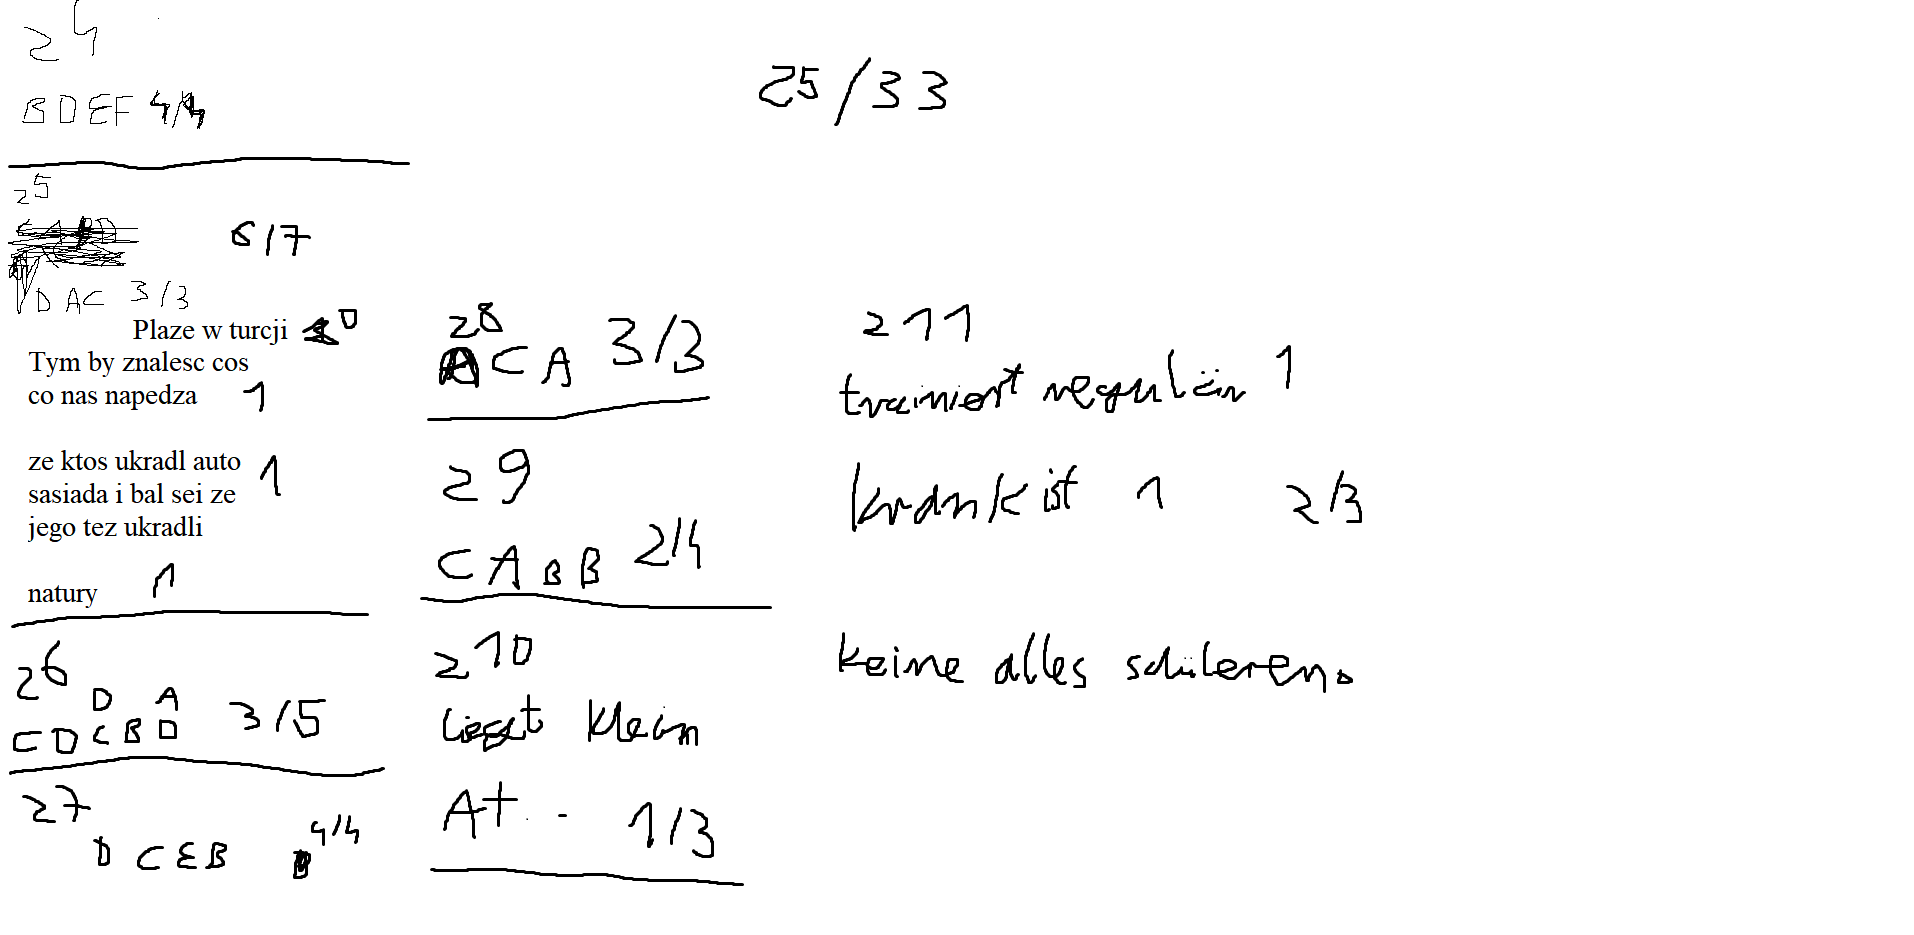 z4
BDEF 4/4
25/33
z5
6/7
DAC 3/3
Plaze w turcji 0
Tym by znalesc cos
co nas napedza 1
ze ktos ukradl auto 1
sasiada i bal sei ze
jego tez ukradli
natury 1
z6
D A
CDCBD 3/5
z7
DCEB 4/4
z8
ACA 3/3
z9
CABB 2/4
z10
klein
At.. - 1/3
z11
trainiert regulär 1
krank ist 1 2/3
keine alles schüleren.